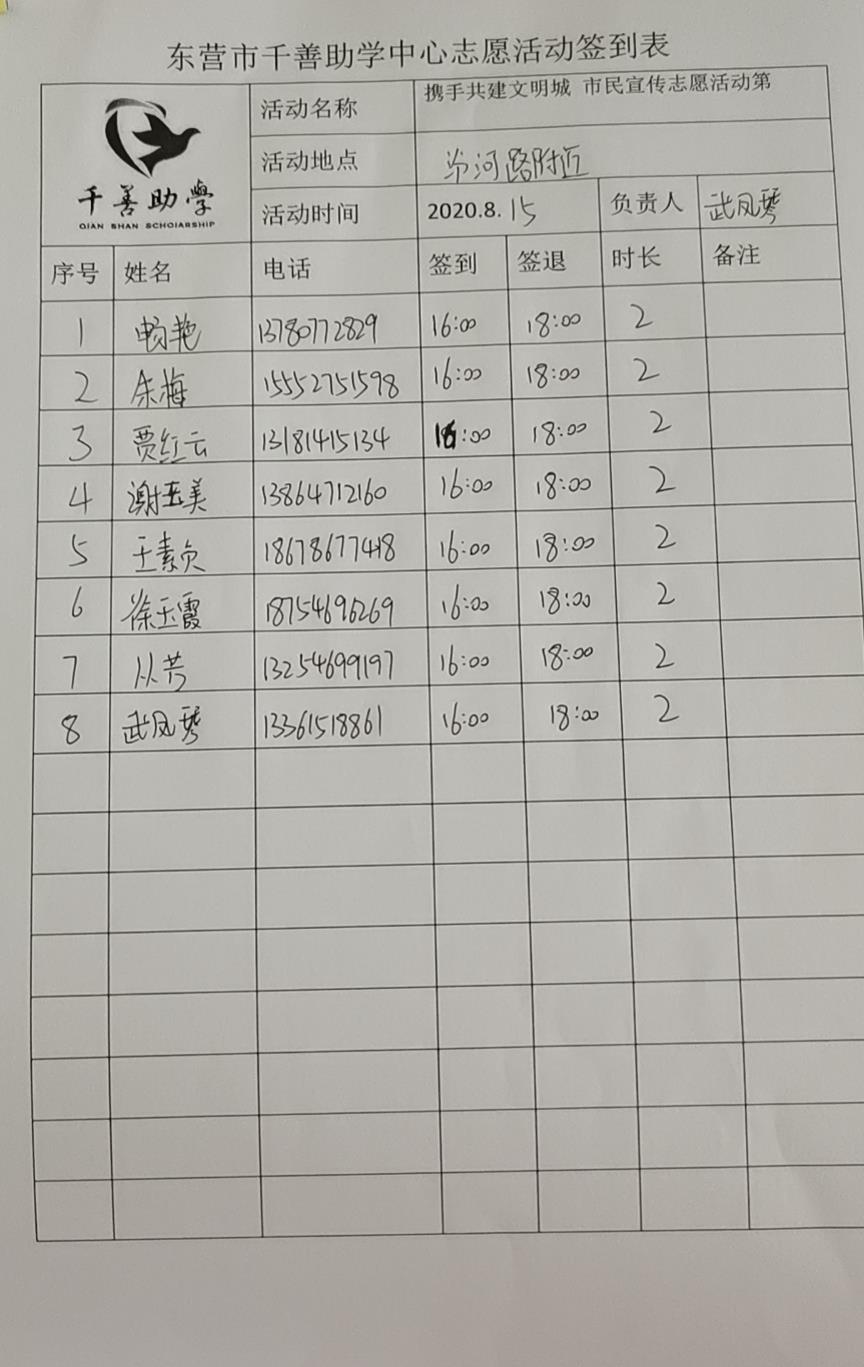 东营市千善助学中心志愿活动签到表
千善助學
QIAN SHAN SCHOIARSHIP
活动名称 携手共建文明城 市民宣传志愿活动第
活动地点 汾河路附近
活动时间 2020.8.15 负责人 武凤琴
序号 姓名 电话 签到 签退 时长 备注
1 畅艳 13780772829 16:00 18:00 2
2 余梅 15552751598 16:00 18:00 2
3 贾红云 13181415134 16:00 18:00 2
4 谢玉美 13864712160 16:00 18:00 2
5 王素贞 18678677418 16:00 18:00 2
6 徐玉霞 18754696269 16:00 18:00 2
7 从芳 13254699197 16:00 18:00 2
8 武凤琴 13361518861 16:00 18:00 2